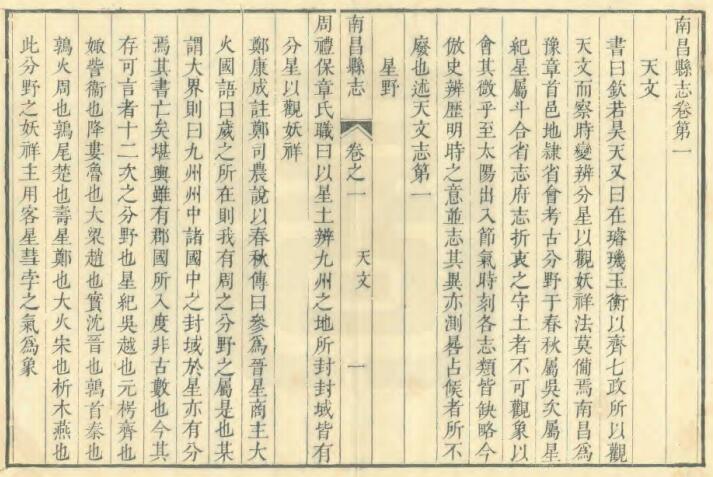 南昌縣志卷第一
天文
書曰欽若昊天又曰在璿璣玉衡以齊七政所以觀
天文而察時變辨分星以觀妖祥法莫備焉南昌爲
豫章首邑地隷省會考古分野于春秋屬吳天屬星
紀星屬斗合省志府志折衷之守土者不可觀象以
會其徵乎至太陽出入節氣時刻各志類皆缺略今
倣史辨歴明時之意並志其異亦測晷占候者所不
廢也述天文志第一
星野
南昌縣志
卷之一
天文
一
周禮保章氏職曰以星土辨九州之地所封封域皆有
分星以觀妖祥
鄭康成註鄭司農說以春秋傳曰參爲晉星商主大
火國語曰歲之所在則我有周之分野之屬是也某
謂大界則曰九州州中諸國中之封域於星亦有分
焉其書亡矣堪輿雖有郡國所入度非古數也今其
存可言者十二次之分野也星紀吳越也元枵齊也
娵訾衞也降婁魯也大梁趙也實沈晉也鶉首秦也
鶉火周也鶉尾楚也壽星鄭也大火宋也析木燕也
此分野之妖祥主用客星彗孛之氣爲象